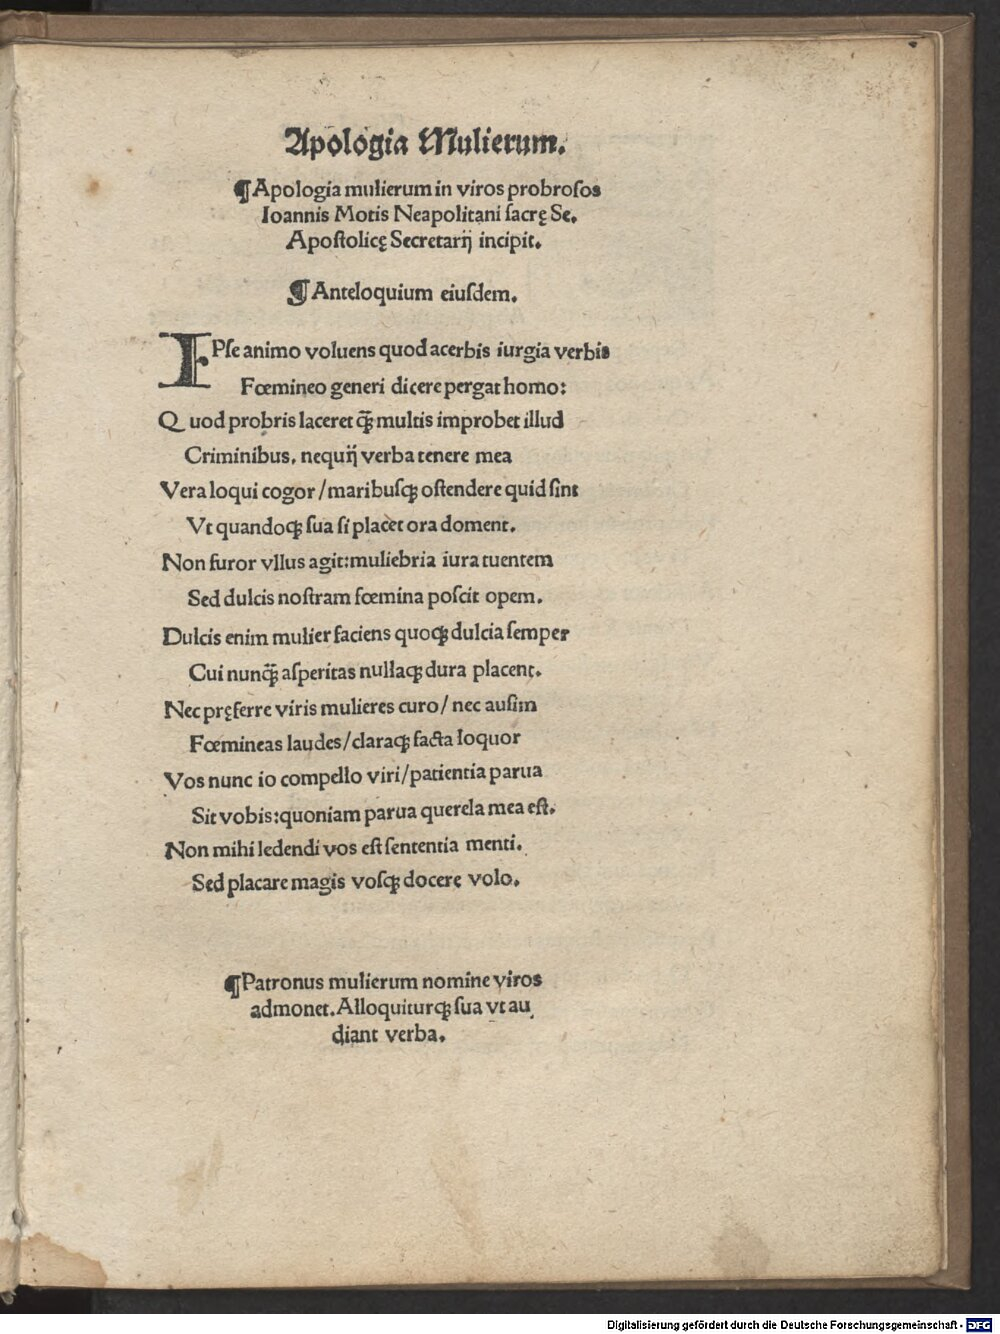 Apologia Mulierum.
¶Apologia mulierum in viros probroſos
Ioannis Motis Neapolitani ſacrę Se.
Apoſtolicę Secretarij incipit.
¶Anteloquium eiuſdem.
IPſe animo voluens quod acerbis iurgia verbis
Fœmineo generi dicere pergat homo:
Quod probris laceret qȝ̃ multis improbet illud
Criminibus. nequij verba tenere mea
Vera loqui cogor / maribuſqȝ oſtendere quid ſint
Vt quandoqȝ ſua ſi placet ora doment.
Non furor vllus agit:muliebria iura tuentem
Sed dulcis noſtram fœmina poſcit opem.
Dulcis enim mulier faciens quoqȝ dulcia ſemper
Cui nunqȝ̃ aſperitas nullaqȝ dura placent.
Nec pręferre viris mulieres curo / nec auſim
Fœmineas laudes / claraqȝ facta loquor
Vos nunc io compello viri / patientia parua
Sit vobis:quoniam parua querela mea eſt.
Non mihi ledendi vos eſt ſententia menti.
Sed placare magis voſqȝ docere volo.
¶Patronus mulierum nomine viros
admonet. Alloquiturqȝ ſua vt au
diant verba.
Digitalisierung gefördert durch die Deutsche Forschungsgemeinschaft - DFG